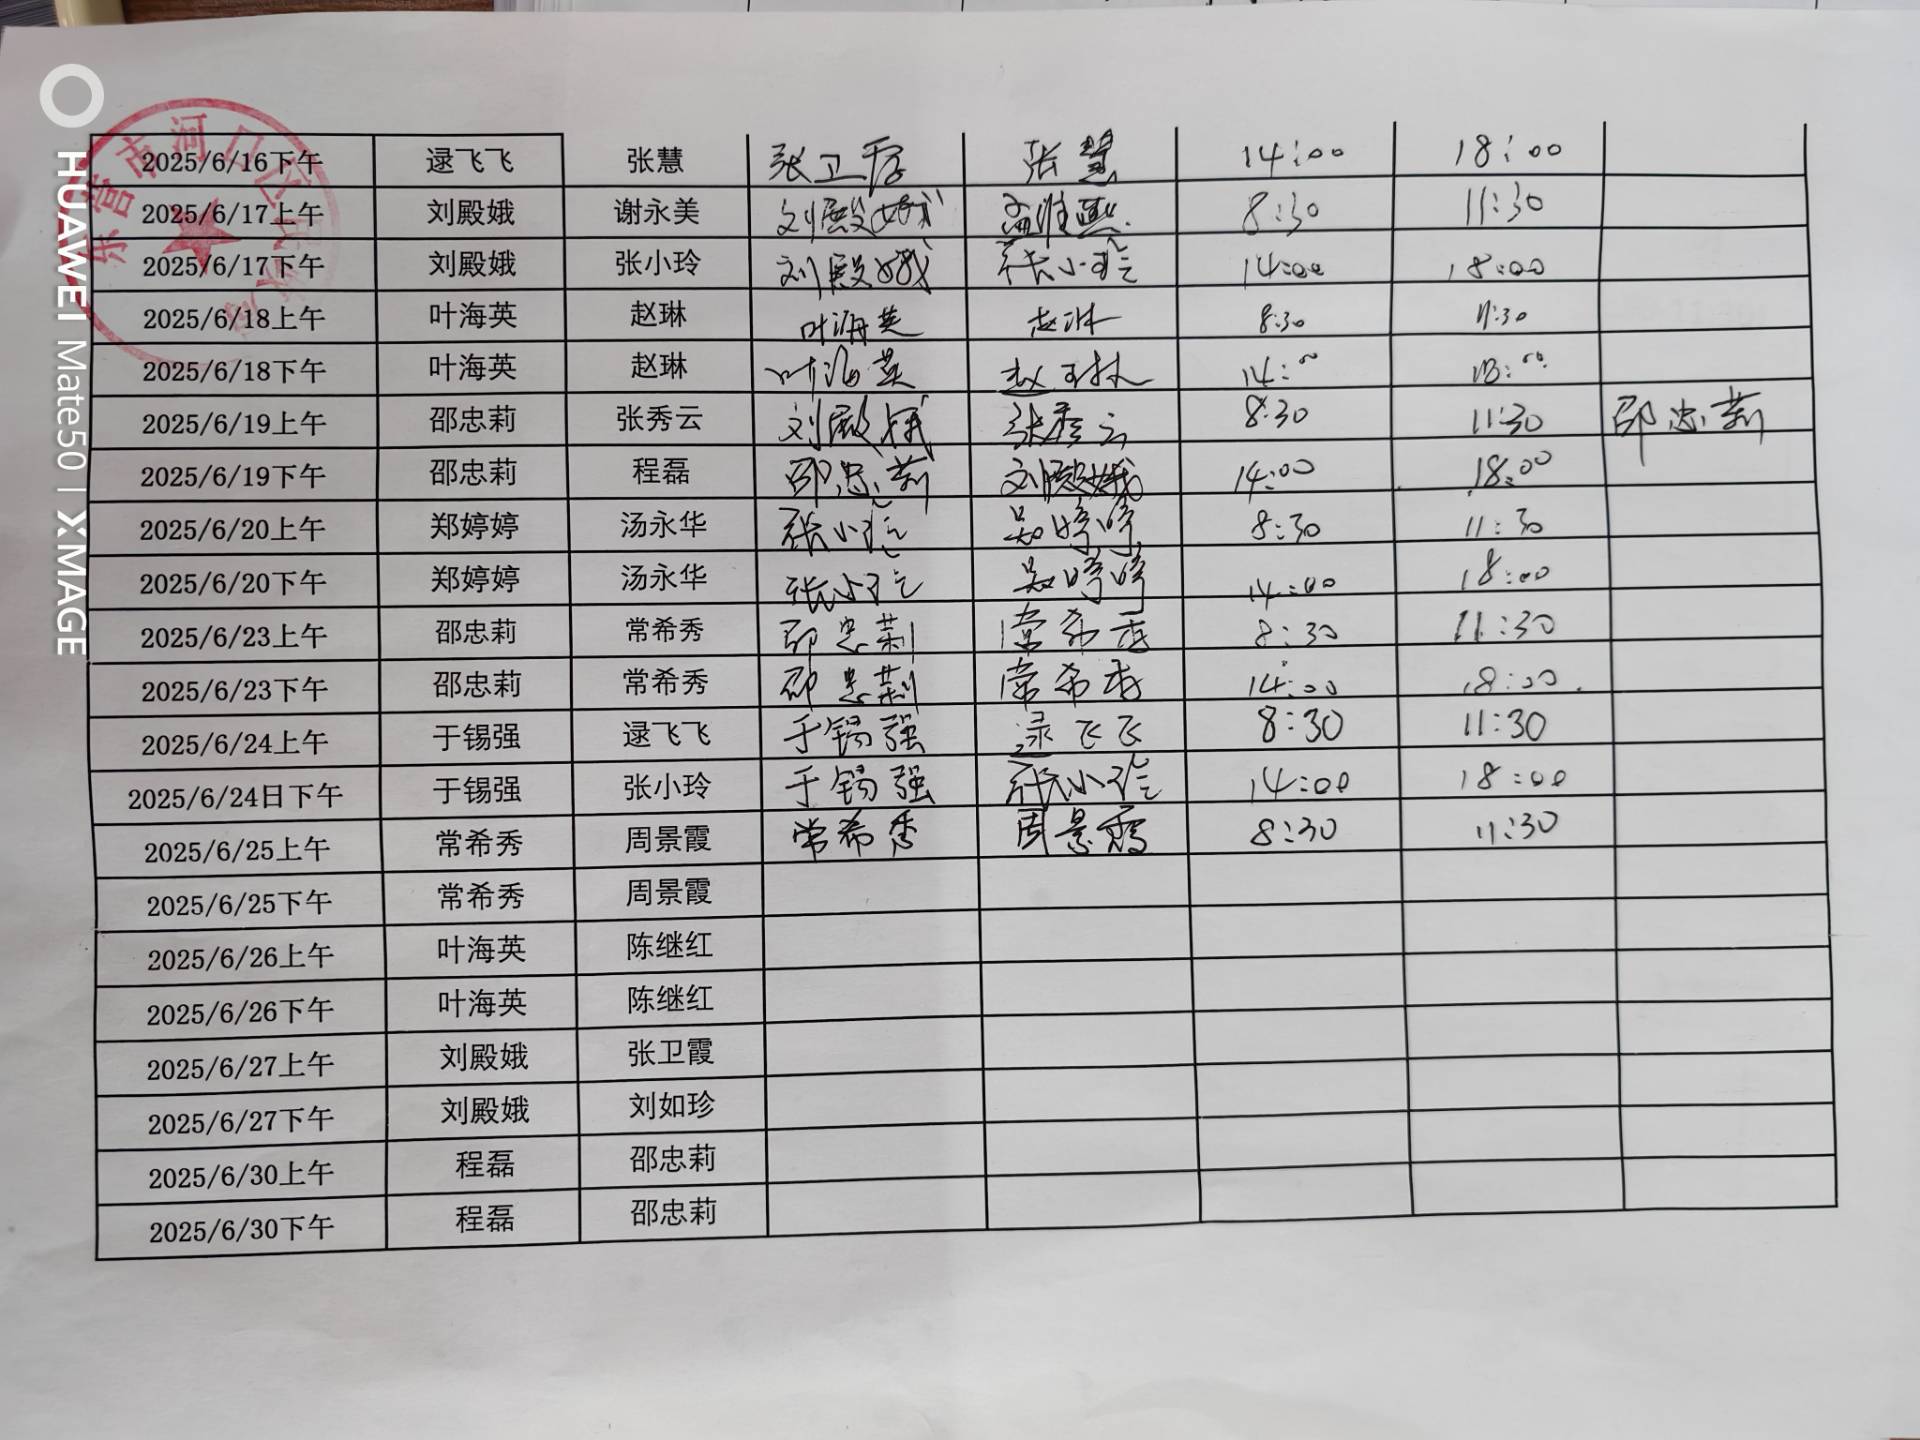 2025/6/16下午 逯飞飞 张慧 张卫霞 张慧 14:00 18:00
2025/6/17上午 刘殿娥 谢永美 刘殿娥 8:30 11:30
2025/6/17下午 刘殿娥 张小玲 刘殿娥 张小玲 14:00 18:00
2025/6/18上午 叶海英 赵琳 叶海英 赵琳 8:30 11:30
2025/6/18下午 叶海英 赵琳 叶海英 赵琳 14:00 18:00
2025/6/19上午 邵忠莉 张秀云 刘殿娥 张秀云 8:30 11:30 邵忠莉
2025/6/19下午 邵忠莉 程磊 邵忠莉 刘殿娥 14:00 18:00
2025/6/20上午 郑婷婷 汤永华 张小玲 吴婷婷 8:30 11:30
2025/6/20下午 郑婷婷 汤永华 张小玲 吴婷婷 14:00 18:00
2025/6/23上午 邵忠莉 常希秀 邵忠莉 常希秀 8:30 11:30
2025/6/23下午 邵忠莉 常希秀 邵忠莉 常希秀 14:00 18:00
2025/6/24上午 于锡强 逯飞飞 于锡强 逯飞飞 8:30 11:30
2025/6/24日下午 于锡强 张小玲 于锡强 张小玲 14:00 18:00
2025/6/25上午 常希秀 周景霞 常希秀 周景霞 8:30 11:30
2025/6/25下午 常希秀 周景霞
2025/6/26上午 叶海英 陈继红
2025/6/26下午 叶海英 陈继红
2025/6/27上午 刘殿娥 张卫霞
2025/6/27下午 刘殿娥 刘如珍
2025/6/30上午 程磊 邵忠莉
2025/6/30下午 程磊 邵忠莉
东营市河口区
HUAWEI Mate50 | XMAGE